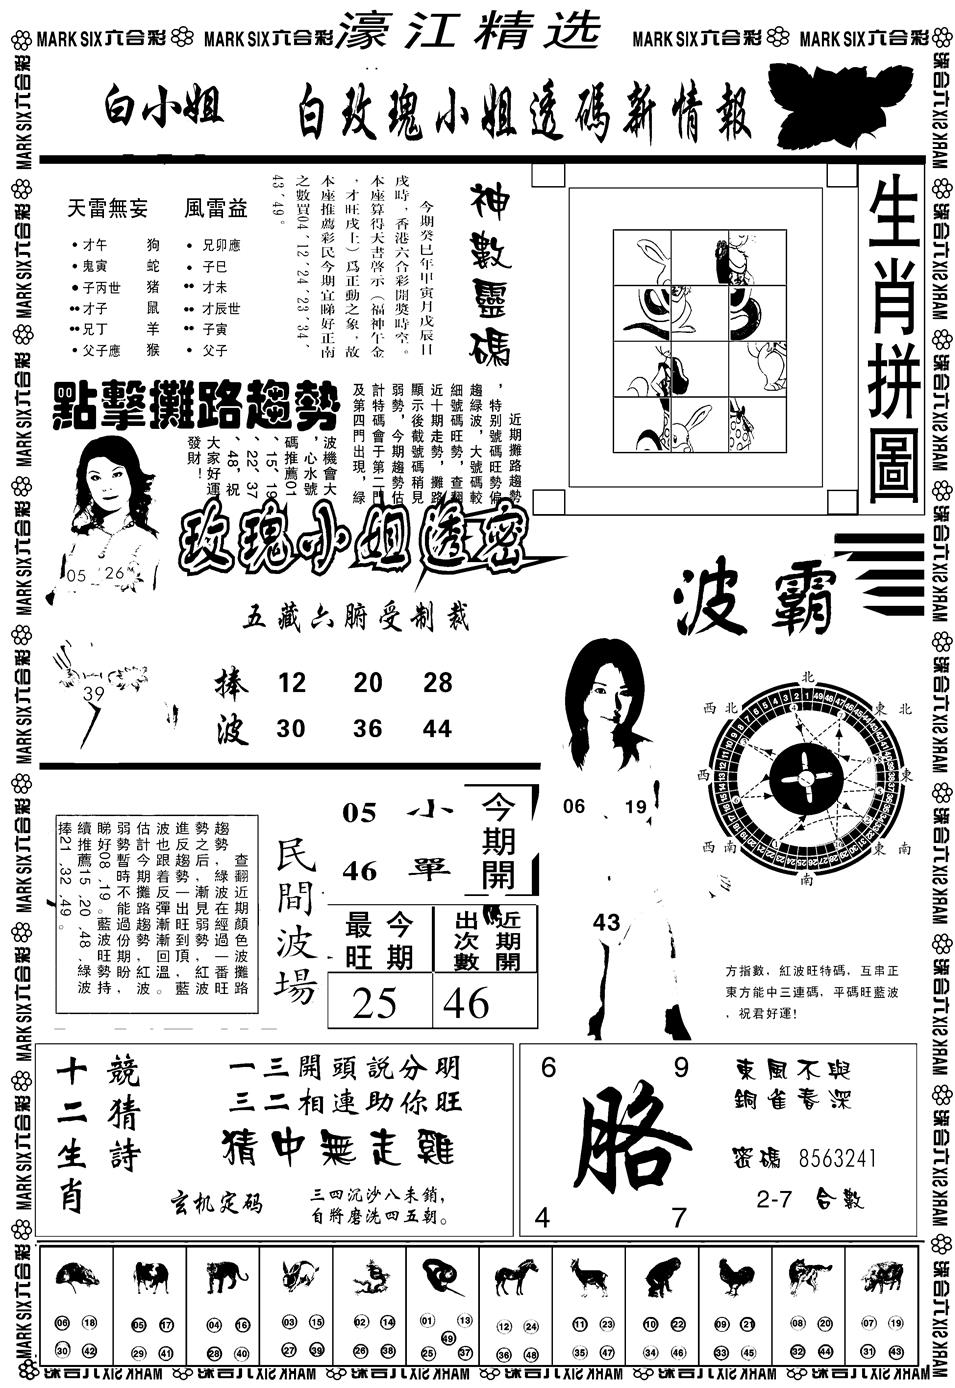 MARK SIX六合彩 MARK SIX六合彩 濠江精选 MARK SIX六合彩 MARK SIX六合彩
白小姐 白玫瑰小姐透碼新情報
天雷無妄 風雷益
才午 狗 兄卯應
鬼寅 蛇 子巳
子丙世 猪 才未
才子 鼠 才辰世
兄丁 羊 子寅
父子應 猴 父子
神數靈碼
今期癸巳年甲寅月戊辰日
戌時，香港六合彩開獎時空。
本座算得天書啓示（福神午金
，才旺戌上）爲正動之象，故
本座推薦彩民今期宜睇好正南
之數買04、12、24、23、34、
43、49。
生肖拼圖
點擊攤路趨勢
近期攤路趨勢
，特別號碼旺勢偏
趨緑波，大號碼較
細號碼旺勢，查翻
近十期走勢，攤路
顯示後截號碼稍見
弱勢，今期趨勢估
計特碼會于第二門
及第四門出現，緑
波機會大
，心水號
碼推薦01
、15、19
、22、37
、48，祝
大家好運
發財！
05 26
39
玫瑰小姐透密
五藏六腑受制裁
捧 12 20 28
波 30 36 44
波霸
06 19
43
北
東北
東
東南
南
西南
西
西北
方指數，紅波旺特碼，互串正
東方能中三連碼，平碼旺藍波
，祝君好運！
查翻近期顏色波攤路
趨勢，緑波在經過一番旺
勢之后，漸見弱勢，紅波
進反趨勢一出旺到頂，藍
波也跟着反彈漸漸回溫。
估計今期攤路趨勢紅波
弱勢暫時不能過份期盼，
睇好08、19。藍波旺勢持
續推薦15、20、48，緑波
捧21、32、49。
民間波場
05 小 今期開
46 單
今期最旺 近期開出次數
25 46
十二生肖
競猜詩
一三開頭説分明
三二相連助你旺
猜中無走雞
玄机定码 三四沉沙八未銷，
自將磨洗四五朝。
6 9
胳
4 7
東風不與
銅雀春深
密碼 8563241
2-7 合數
06 18 05 17 04 16 03 15 02 14 01 13 12 24 11 23 10 22 09 21 08 20 07 19
49
30 42 29 41 28 40 27 39 26 38 25 37 36 48 35 47 34 46 33 45 32 44 31 43